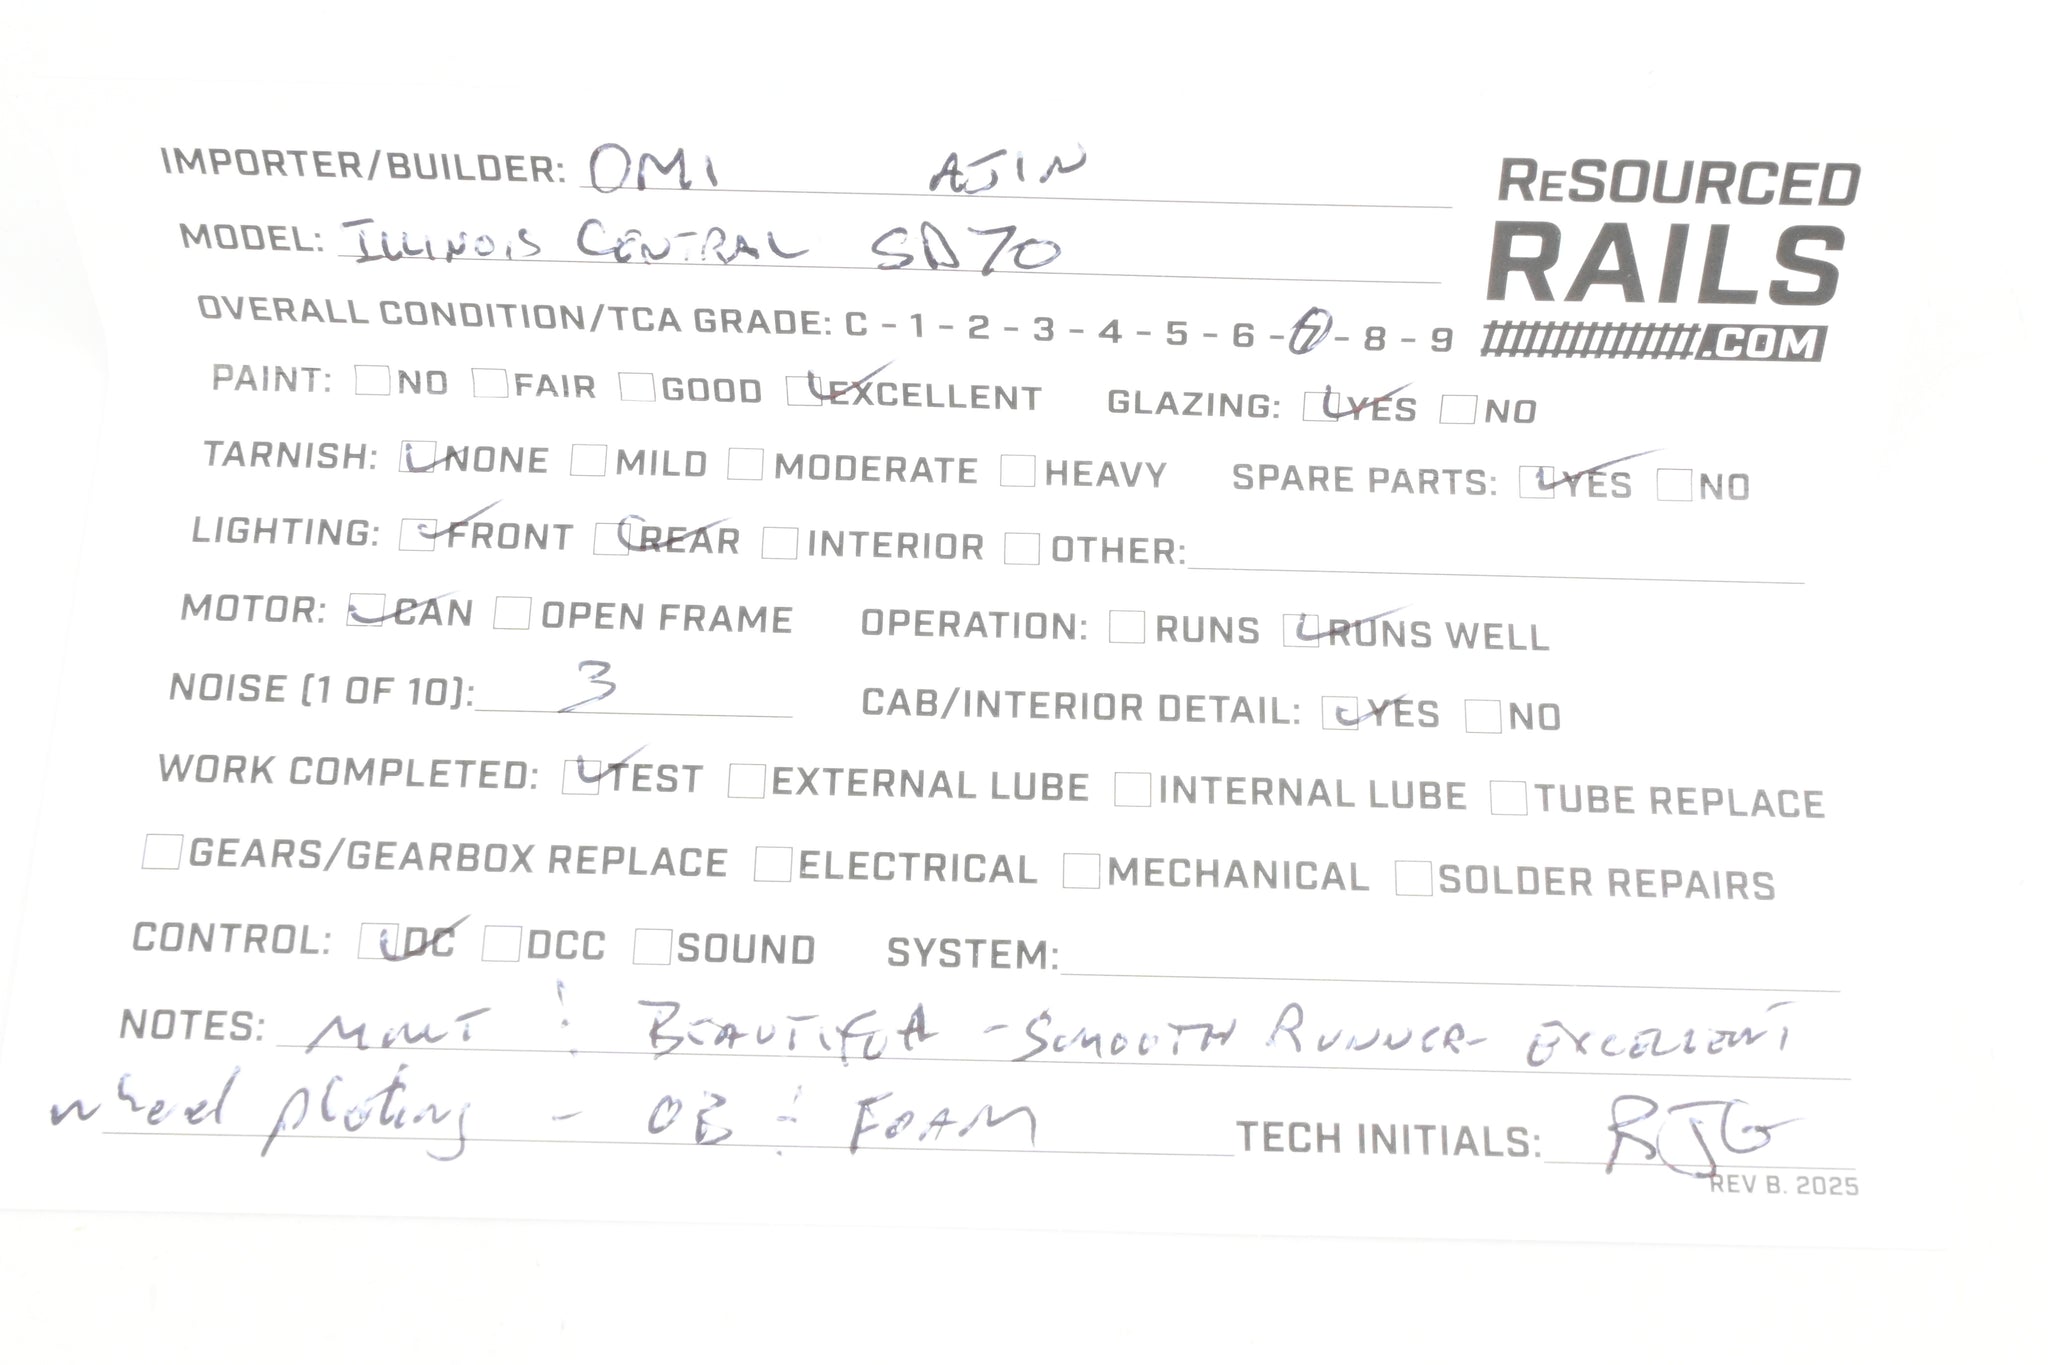 IMPORTER/BUILDER: OMI AJIN
RESOURCED
RAILS
.COM
MODEL: ILLINOIS CENTRAL SD70
OVERALL CONDITION/TCA GRADE: C - 1 - 2 - 3 - 4 - 5 - 6 - 7 - 8 - 9
PAINT: NO FAIR GOOD EXCELLENT GLAZING: YES NO
TARNISH: NONE MILD MODERATE HEAVY SPARE PARTS: YES NO
LIGHTING: FRONT REAR INTERIOR OTHER:
MOTOR: CAN OPEN FRAME OPERATION: RUNS RUNS WELL
NOISE (1 OF 10): 3 CAB/INTERIOR DETAIL: YES NO
WORK COMPLETED: TEST EXTERNAL LUBE INTERNAL LUBE TUBE REPLACE
GEARS/GEARBOX REPLACE ELECTRICAL MECHANICAL SOLDER REPAIRS
CONTROL: DC DCC SOUND SYSTEM:
NOTES: MINT ! BEAUTIFUL - SMOOTH RUNNER - EXCELLENT
wheel plating - OB & FOAM TECH INITIALS: RJG
REV B. 2025